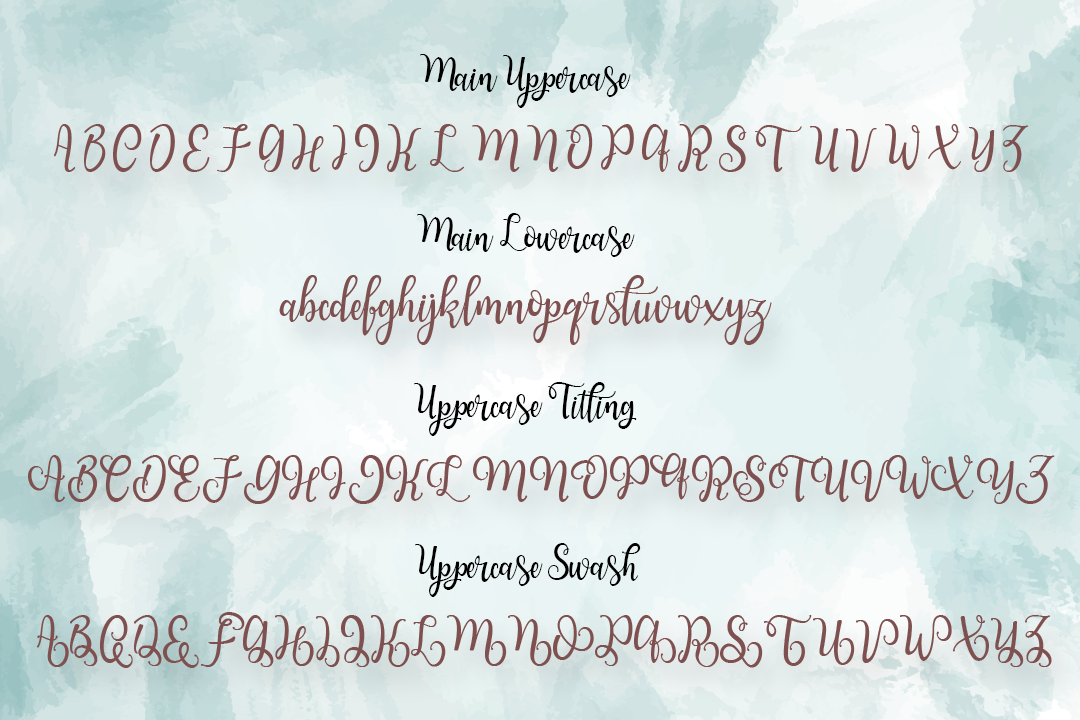 Main Uppercase
ABCDEFGHIJKLMNOPQRSTUVWXYZ
Main Lowercase
abcdefghijklmnopqrstuvwxyz
Uppercase Titling
ABCDEFGHIJKLMNOPQRSTUVWXYZ
Uppercase Swash
ABCDEFGHIJKLMNOPQRSTUVWXYZ